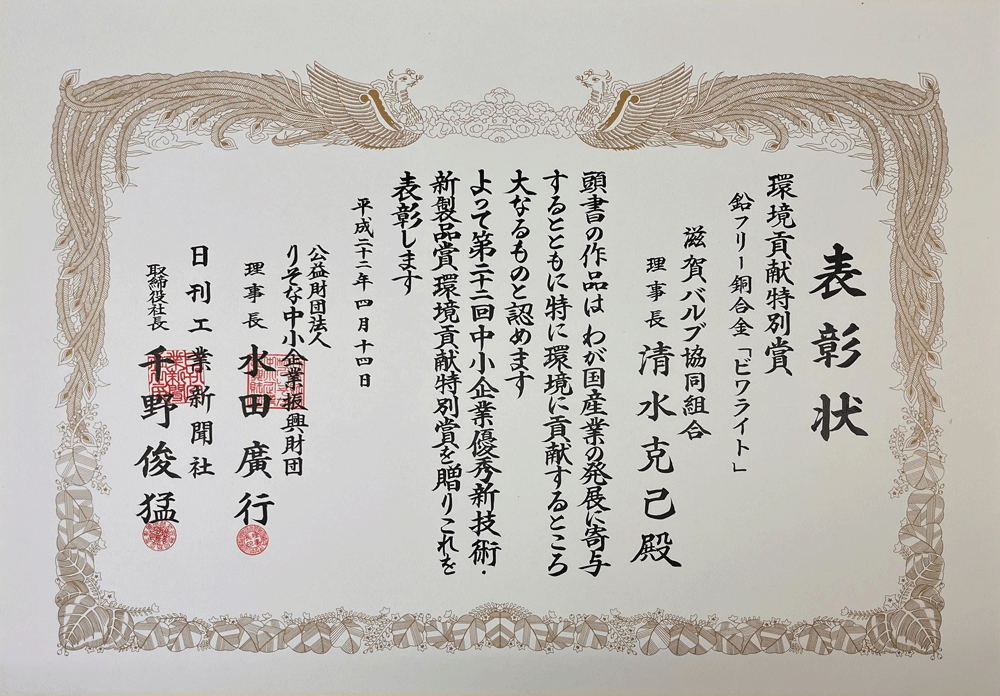 表彰状
環境貢献特別賞
鉛フリー銅合金「ビワライト」
滋賀バルブ協同組合
理事長 清水克己殿
頭書の作品は わが国産業の発展に寄与
するとともに特に環境に貢献するところ
大なるものと認めます
よって第二十二回中小企業優秀新技術・
新製品賞環境貢献特別賞を贈りこれを
表彰します
平成二十二年四月十四日
公益財団法人
りそな中小企業振興財団
理事長 水田廣行
日刊工業新聞社
取締役社長 千野俊猛